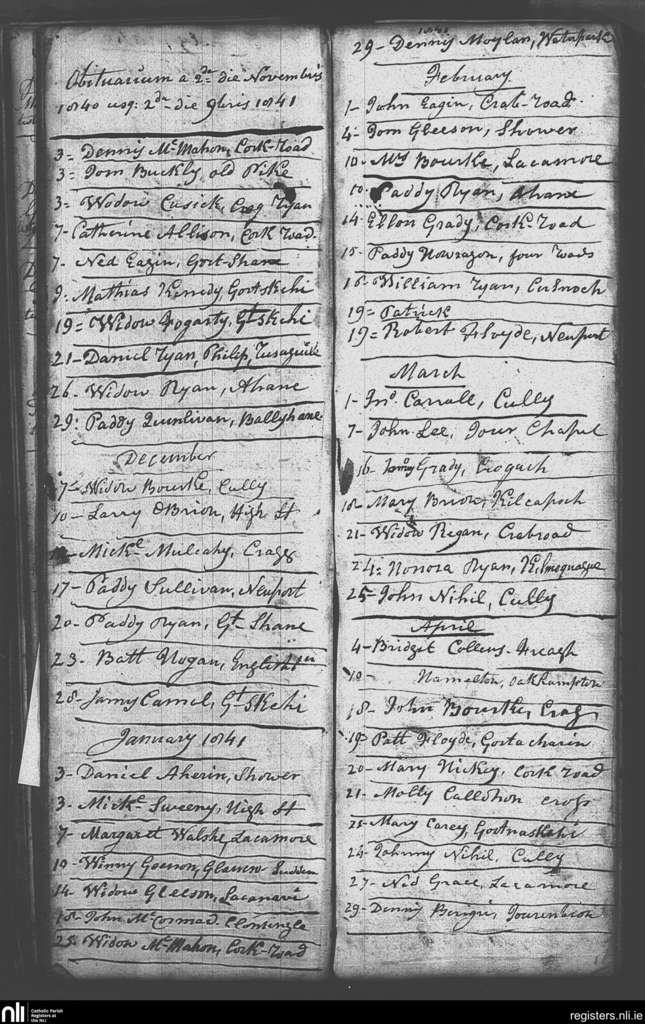 Obituarium a 2da die Novembris
1840 usq: 2da die 9bris 1841
3= Dennis McMahon, Cork-Road
3= Tom Buckly, old Pike
3= Widow Cusick, Crag Ryan
7- Catherine Allison, Cork Road.
7- Ned Eagin, Gort Shane
9. Mathias Kenedy Gortskehi
19= Widow Fogarty, Gt Skehi
21- Daniel Ryan, Philip,
26- Widow Ryan, Ahane
29: Paddy Quinlivan, Ballyhane
December
7- Widow Bourke, Cully
10- Larry OBrion, High St
Mickl Mulcahy, Cragg
17- Paddy Sullivan, Neuport
20- Paddy Ryan, Gt Shane
23- Batt Hogan,
28- Jamy Carrol, Gt Skehi
January 1841
3- Daniel Aherin, Shower
3- Mickl Sweeny, High St
7- Margaret Walshe, Lacamore
10- Winny
14- Widow Gleeson, Lacanavè
18- John McCormac.
25= Widow McMahon, Cork-Road
1841
29- Dennis Moylan, Waterpark
February
1- John Eagin, Crab-road
4- Tom Gleeson, Shower
10- Mrs Bourke, Lacamore
10- Paddy Ryan, Ahane
14- Ellon Grady, Cork-Road
15- Paddy four Roads
18- William Ryan,
19= Patrick
19= Robert Floyde, Neuport
March
1- Jno. Carrall, Cully
7- John Lee, Tour Chapel
16- Grady,
18- Mary Brion,
21- Widow Regan, Crabroad
24= Honora Ryan,
25- John Nihil, Cully
April
4- Bridget Collens.
10- Hamelton, Oakhampton
18- John Bourke, Crag
19- Patt Floyde, Gortacharin
20- Mary Hickey, Cork road
21- Molly cross
25- Mary Carey, Gortnaskehi
24- Johnny Nihil, Cully
27- Ned Grace, Lacamore
29- Denny
nli
Catholic Parish
Registers at
the NLI
registers.nli.ie